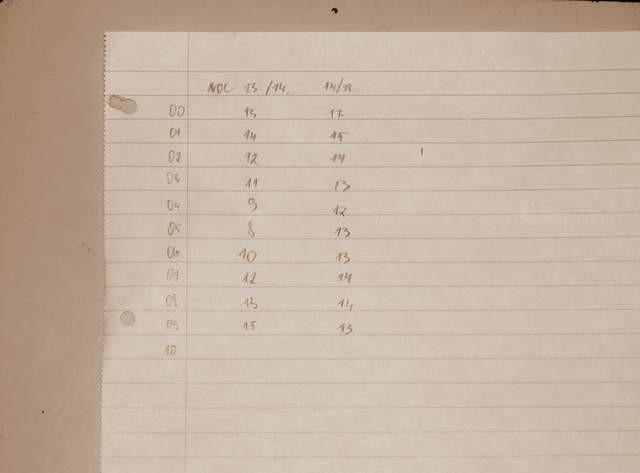 NOC 13./14. 14/15
00 13 17
01 14 15
02 12 14
03 11 13
04 9 12
05 8 13
06 10 13
07 12 14
08 13 14
09 15 13
10